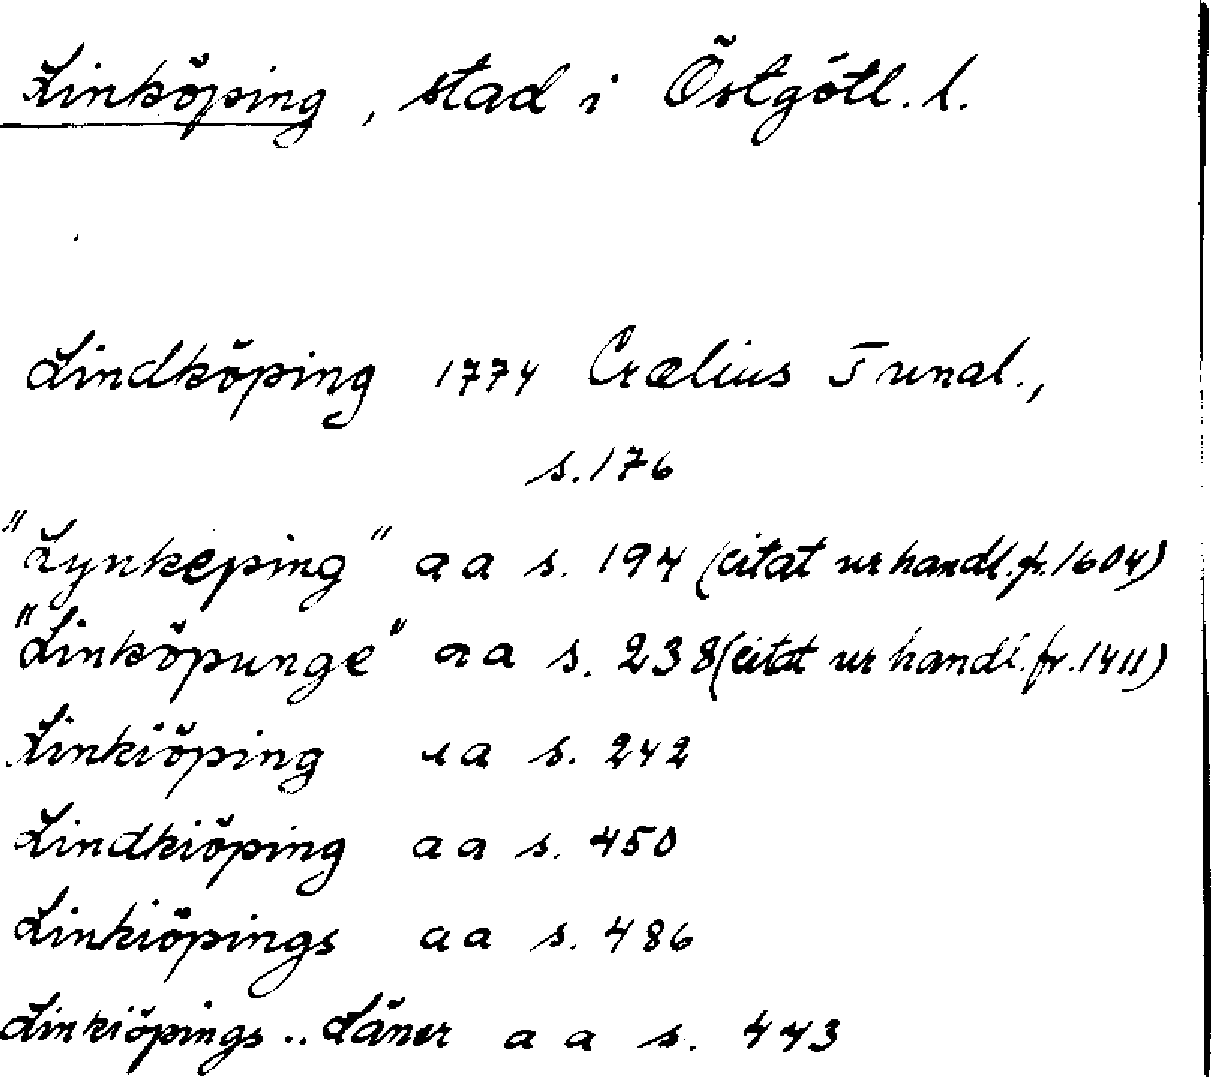 Linköping, stad i Östgötl. l.
Lindköping 1774 Crælius Tunal.,
s. 176
"Lynkeping" a a s. 194 (citat ur handl. fr. 1604)
"Linköpunge" a a s. 238 (citat ur handl. fr. 1411)
Linkiöping a a s. 242
Lindkiöping a a s. 450
Linkiöpings a a s. 486
Linkiöpings .. Läner a a s. 443